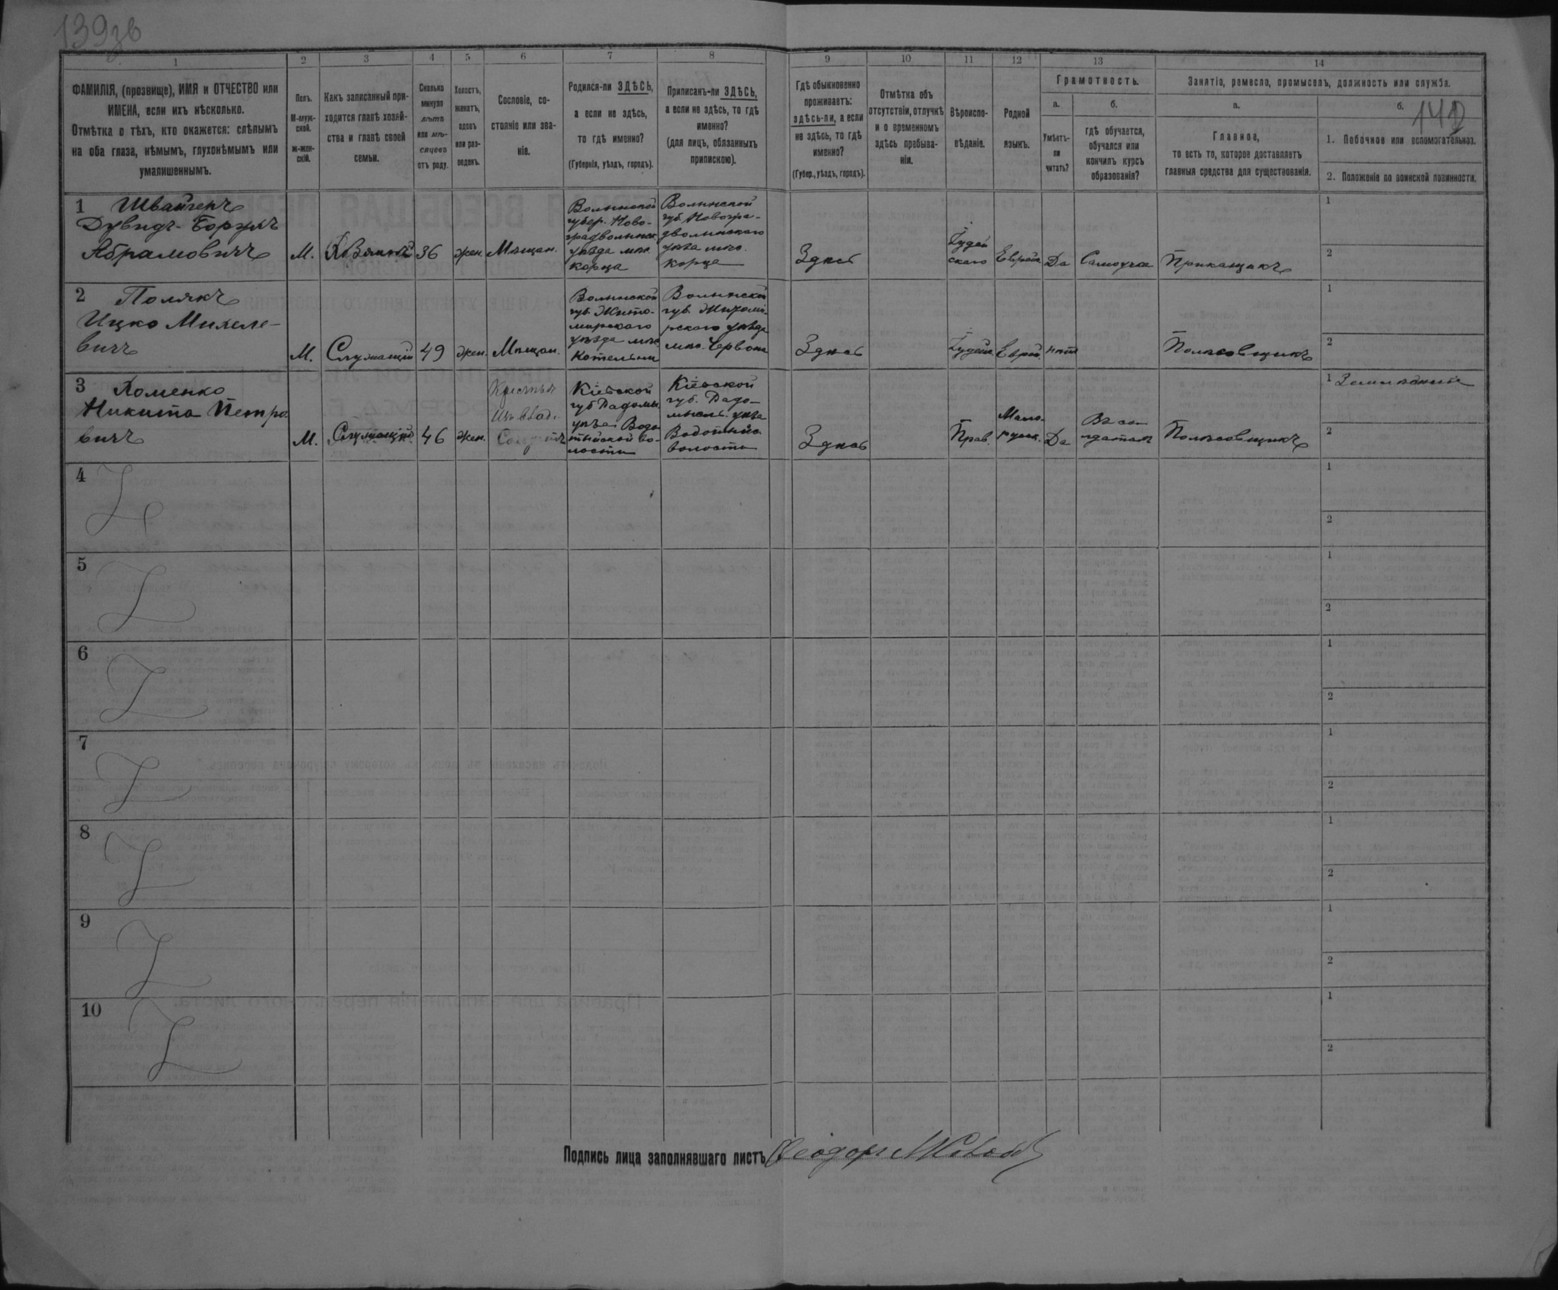 139зв
142
1
2
3
4
5
6
7
8
9
10
11
12
13
14
ФАМИЛІЯ, (прозвище), ИМЯ и ОТЧЕСТВО или
ИМЕНА, если ихъ нѣсколько.
Отмѣтка о тѣхъ, кто окажется: слѣпымъ
на оба глаза, нѣмымъ, глухонѣмымъ или
умалишеннымъ.
Полъ.
М-муж-
ской.
Ж-жен-
скій.
Какъ записанный при-
ходится главѣ хозяй-
ства и главѣ своей
семьи.
Сколько
минуло
лѣтъ
или мѣ-
сяцевъ
отъ роду.
Холостъ,
женатъ,
вдовъ
или раз-
веденъ.
Сословіе, со-
стояніе или зва-
ніе.
Родился-ли ЗДѢСЬ,
а если не здѣсь,
то гдѣ именно?
(Губернія, уѣздъ, городъ).
Приписанъ-ли ЗДѢСЬ,
а если не здѣсь, то гдѣ
именно?
(для лицъ, обязанныхъ
припискою).
Гдѣ обыкновенно
проживаетъ:
здѣсь-ли, а если
не здѣсь, то гдѣ
именно?
(Губер., уѣздъ, городъ).
Отмѣтка объ
отсутствіи, отлучкѣ
и о временномъ
здѣсь пребыва-
ніи.
Вѣроиспо-
вѣданіе.
Родной
языкъ.
Грамотность.
а.
Умѣетъ-
ли
читать?
б.
гдѣ обучается,
обучался или
кончилъ курсъ
образованія?
Занятіе, ремесло, промыселъ, должность или служба.
а.
Главное,
то есть то, которое доставляетъ
главныя средства для существованія.
б.
1. Побочное или вспомогательное.
2. Положеніе по воинской повинности.
1 Швайгенъ
Дувидъ-Борухъ
Абрамовичъ
М.
36
жен.
Мѣщан.
Волынской
губер. Ново-
градволынск.
уѣзда мѣс.
Корца
Волынской
губ. Новогра-
дволынскаго
уѣзда мѣс.
Корца
Здѣсь
Іудей
скаго
Еврейс
Да
Самоучка
Прикащикъ
1
2
2 Полякъ
Ицко Михеле-
вичъ
М.
Служащій
49
жен.
Мѣщан.
Волынской
губ. Жито-
мирскаго
уѣзда мѣс.
Котельни
Волынской
губ. Житоми
рскаго уѣзда
мѣс. Червон
Здѣсь
Іудейс
Еврей
нѣтъ
Полѣсовщикъ
1
2
3 Хоменко
Никита Петро
вичъ
М.
Служащій
46
жен.
Крестьян
Кіевской
губ. Радомы
уѣзда Водо
тыйской во-
лости
Кіевской
губ. Радо-
мысль. уѣзд
Водотыйс
волости
Здѣсь
Прав.
Мало-
русск.
Да
Въ со
лдатахъ
Полѣсовщикъ
1 Земледѣліе
2
4
1
2
5
1
2
6
1
2
7
1
2
8
1
2
9
1
2
10
1
2
Подпись лица заполнявшаго листъ